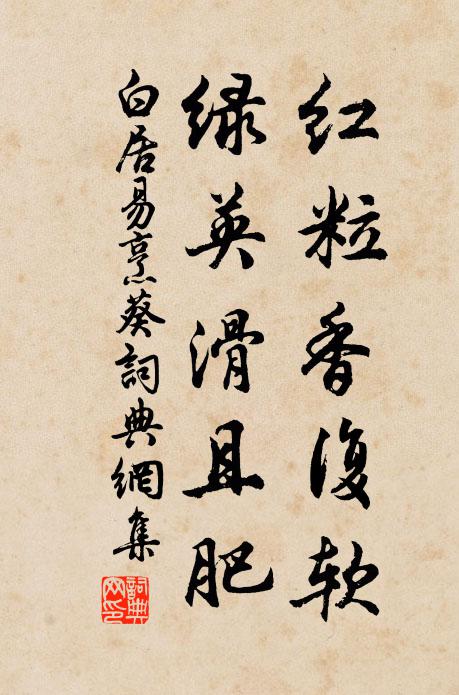 红粒香復软
绿英滑且肥
白居易烹葵詞典網集
詞典网印